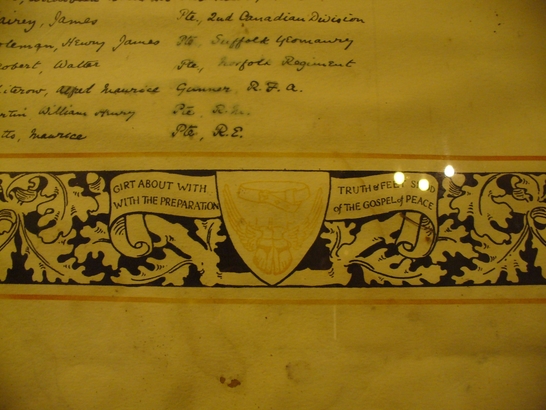 James Pte, 2nd Canadian Division
Henry James Pte, Suffolk Yeomanry
Walter Pte, Norfolk Regiment
Maurice Gunner, R.F.A.
William Henry Pte
Maurice Pte, R.E.
GIRT ABOUT WITH TRUTH & FEET SHOD
WITH THE PREPARATION of THE GOSPEL of PEACE